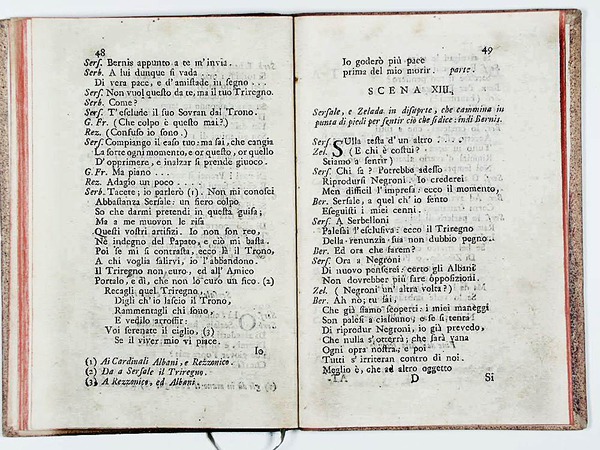 48
Sers. Bernis appunto a te m'invia.
Serb. A lui dunque si vada . . . .
Di vera pace, e d'amistade in segno . . .
Sers. Non vuol questo da te, ma il tuo Triregno.
Serb. Come?
Sers. T'esclude il suo Sovran dal Trono.
G. Fr. (Che colpo è questo mai?)
Rez. (Confuso io sono.)
Sers. Compiango il caso tuo: ma sai, che cangia
La sorte ogni momento, e or questo, or quello
D' opprimere, e inalzar si prende giuoco.
G. Fr. Ma piano . . .
Rez. Adagio un poco . . . .
Serb. Tacete; io parlerò (1). Non mi conosci
Abbastanza Sersale: un fiero colpo
So che darmi pretendi in questa guisa;
Ma a me muovon le risa
Questi vostri artifizi. Io non son reo,
Nè indegno del Papato, e ciò mi basta.
Poi se mi si contrasta, ecco là il Trono,
A chi voglia salirvi, io l'abbandono.
Il Triregno non curo, ed all' Amico
Portalo, e dì, che non lo curo un fico. (2)
Recagli quel Triregno,
Digli ch' io lascio il Trono,
Rammentagli chi sono,
E vedilo arrossir:
Voi serenate il ciglio, (3)
Se il viver mio vi piace.
Io,
(1) Ai Cardinali Albani, e Rezzonico.
(2) Da a Sersale il Triregno.
(3) A Rezzonico, ed Albani.
49
Io goderò più pace
prima del mio morir. parte.
SCENA XIII.
Sersale, e Zelada in disparte, che cammina in
punta di piedi per sentir ciò che si dice: indi Bernis.
Sers. SUlla testa d'un altro . . . .
Zel. (E chi è costui?
Stiamo a sentir)
Sers. Chi sa? Potrebbe adesso
Riprodursi Negroni. Io crederei
Men difficil l'impresa: ecco il momento,
Ber. Sersale, a quel ch' io sento
Eseguisti i miei cenni.
Sers. A Serbelloni
Palesai l'esclusiva: ecco il Triregno
Della renunzia sua non dubbio pegno.
Ber. Ed ora che farem?
Sers. Ora a Negroni
Di nuovo penserei: certo gli Albani
Non dovrebber più fare opposizioni.
Zel. (Negroni un' altra volta?)
Ber. Ah nò; tu sai,
Che già siamo scoperti: i miei maneggi
Son palesi a ciascuno; e se si tenta
Di riprodur Negroni, io già prevedo,
Che nulla s'otterrà; che sarà vana
Ogni opra nostra; e più
Tutti s' irriteran contro di noi.
Meglio è, che ad altro oggetto
D
Si